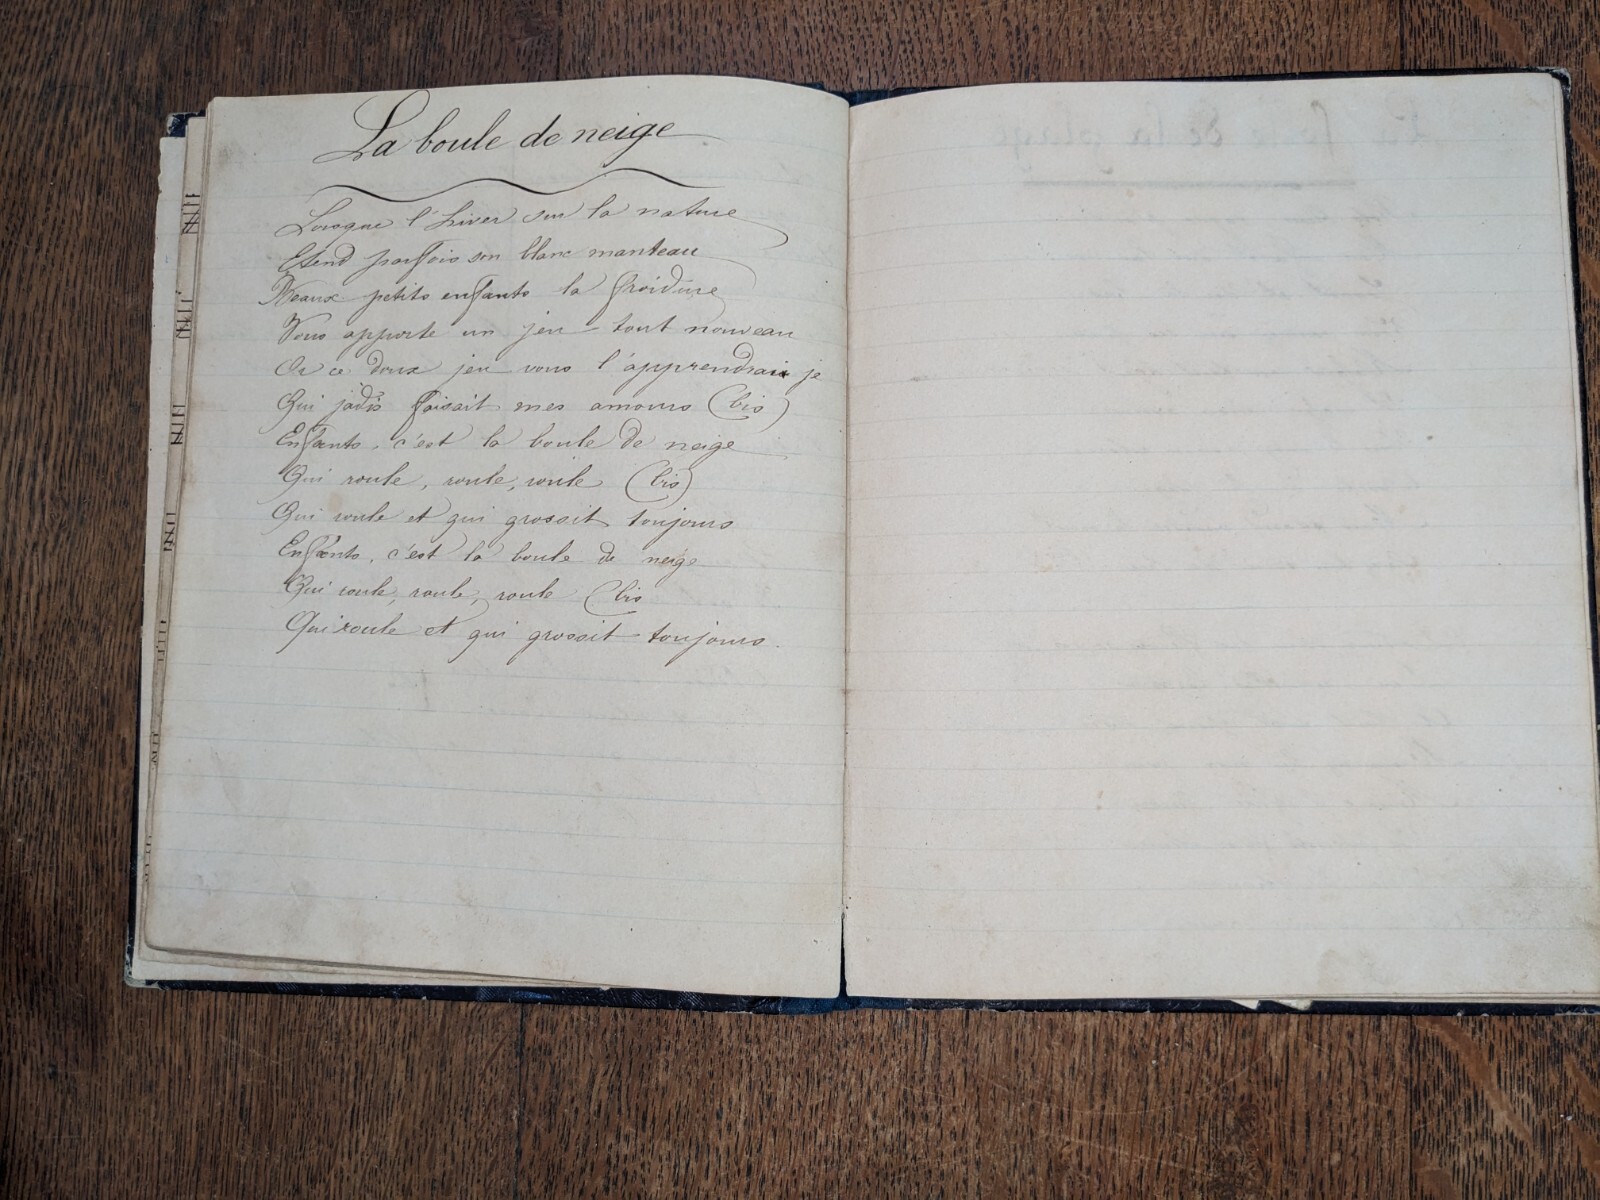 La boule de neige
Lorsque l'hiver sur la nature
Etend parfois son blanc manteau
Beaux petits enfants la froidure
Vous apporte un jeu tout nouveau
Or ce doux jeu vous l'apprendrai je
Qui jadis faisait mes amours (bis)
Enfants, c'est la boule de neige
Qui roule, roule, roule (bis)
Qui roule et qui grossit toujours
Enfants, c'est la boule de neige
Qui roule, roule, roule (bis
Qui roule et qui grossit toujours.